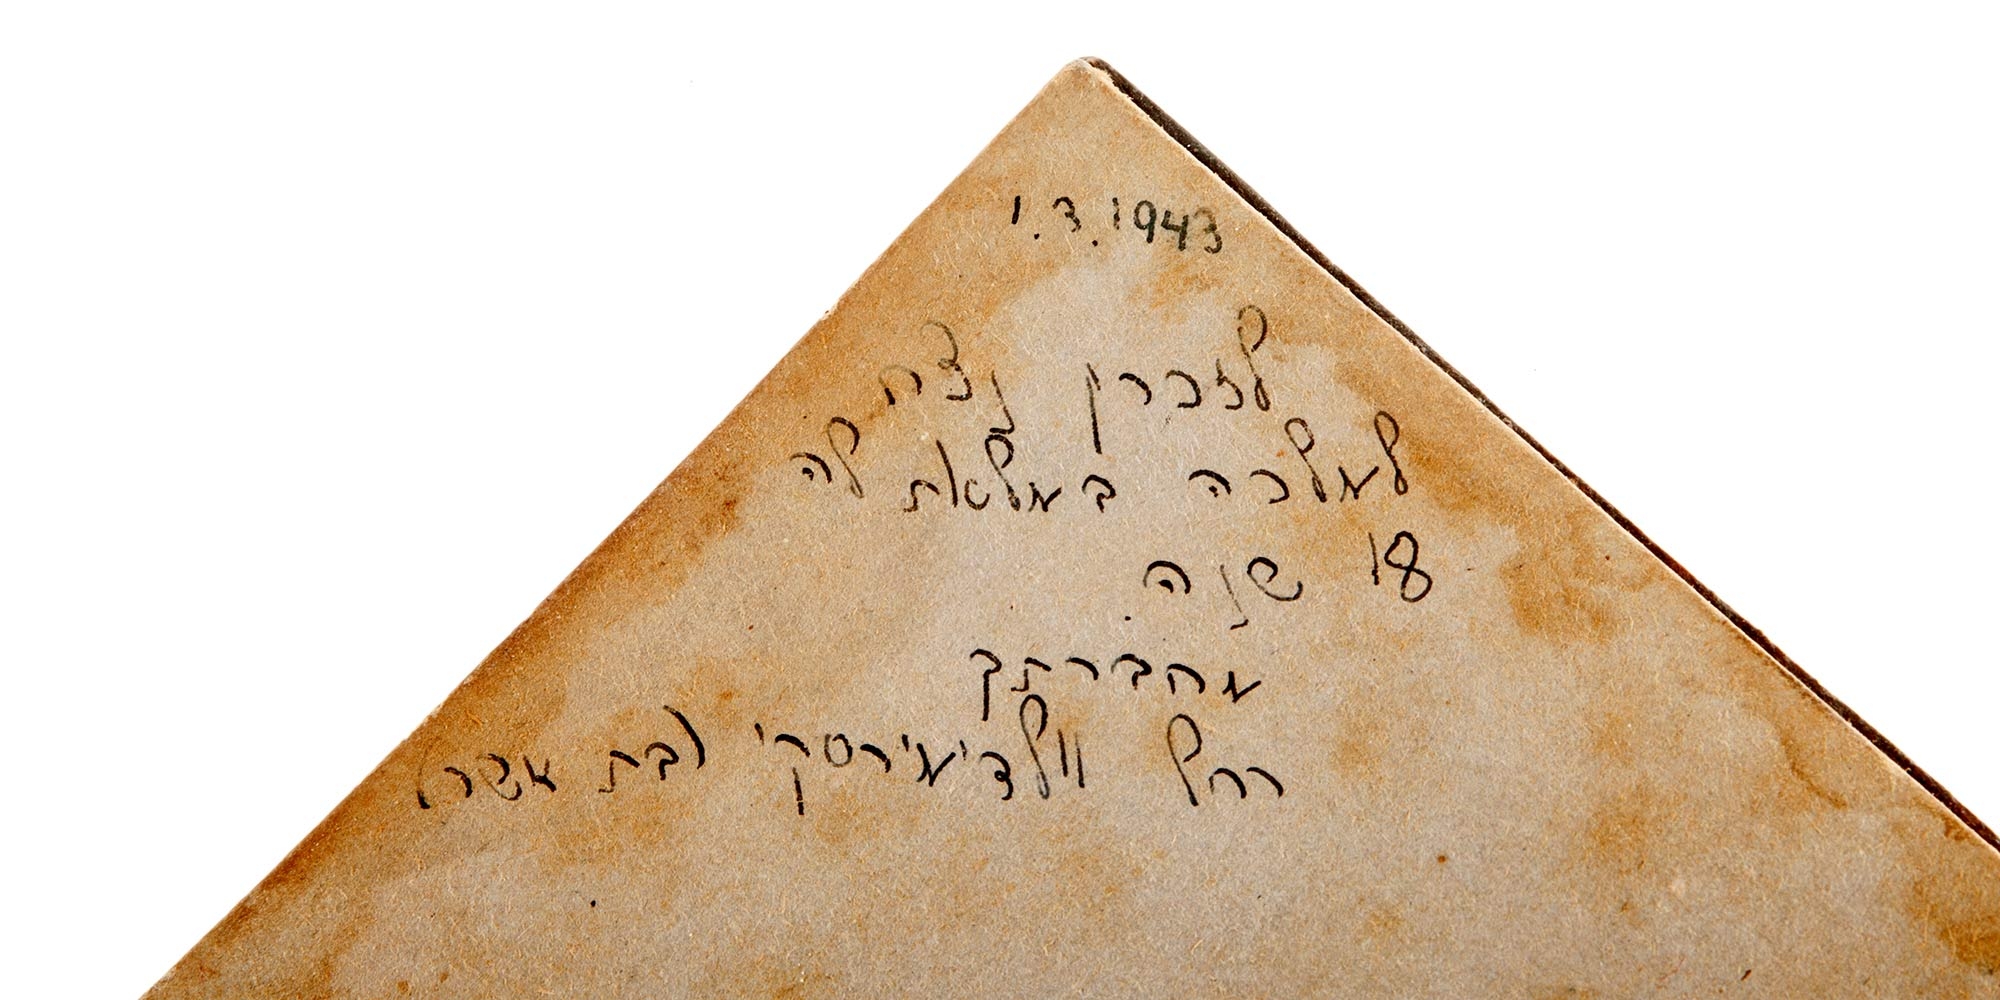 1.3.1943
לזכרון נצח
למלכה במלאת לה
18 שנה.
מחברתך
רחל וולדימירסקי (בת אשר)